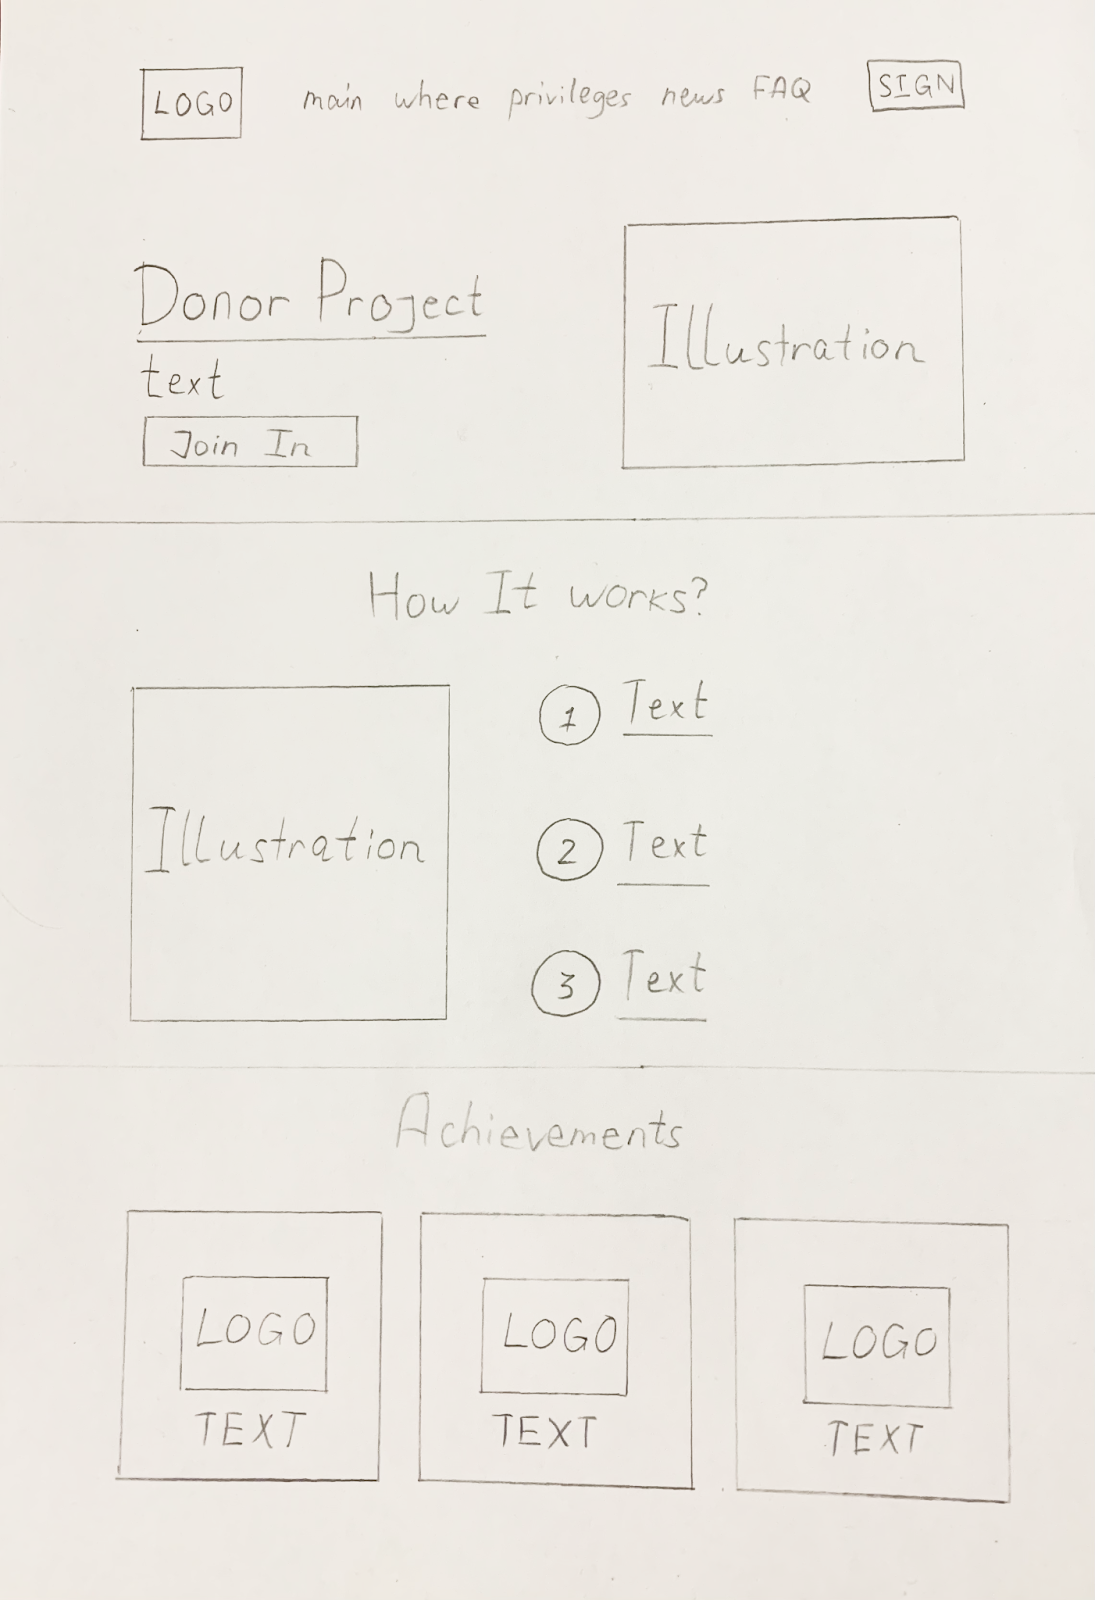 LOGO main where privileges news FAQ SIGN
Donor Project
text
Join In
Illustration
How It works?
Illustration
1 Text
2 Text
3 Text
Achievements
LOGO
TEXT
LOGO
TEXT
LOGO
TEXT